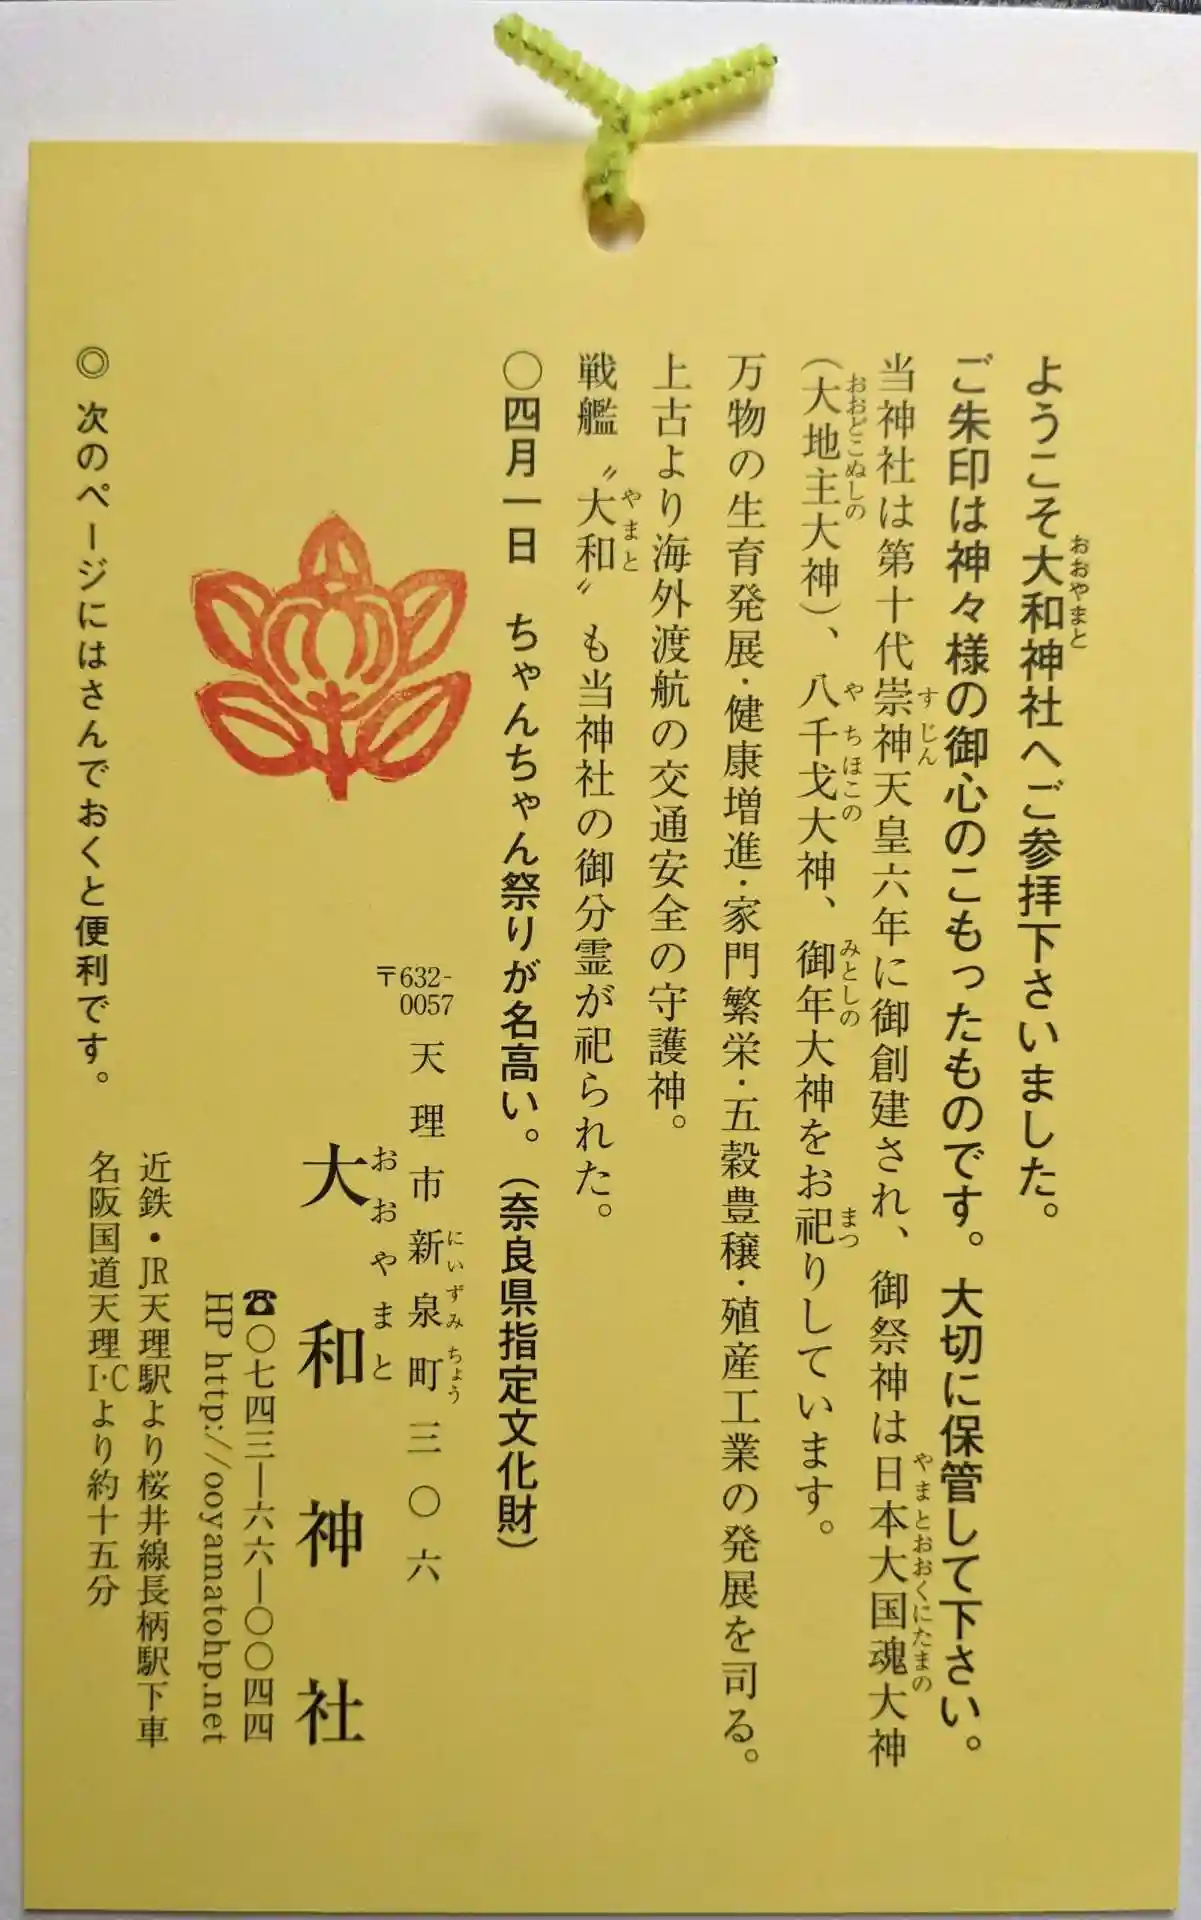 ようこそ大和神社へご参拝下さいました。
おおやまと
ご朱印は神々様の御心のこもったものです。大切に保管して下さい。
当神社は第十代崇神天皇六年に御創建され、御祭神は日本大国魂大神
すじん
やまとおおくにたまの
（大地主大神）、八千戈大神、御年大神をお祀りしています。
おおどこぬしの
やちほこの
みとしの
まつ
万物の生育発展・健康増進・家門繁栄・五穀豊穣・殖産工業の発展を司る。
上古より海外渡航の交通安全の守護神。
戦艦〝大和〟も当神社の御分霊が祀られた。
やまと
〇四月一日　ちゃんちゃん祭りが名高い。（奈良県指定文化財）
〒632-0057 天理市新泉町三〇六
にいずみちょう
大和神社
おおやまと
☎〇七四三―六六―〇〇四四
HP http://ooyamatohp.net
近鉄・JR天理駅より桜井線長柄駅下車
名阪国道天理I・Cより約十五分
◎ 次のページにはさんでおくと便利です。